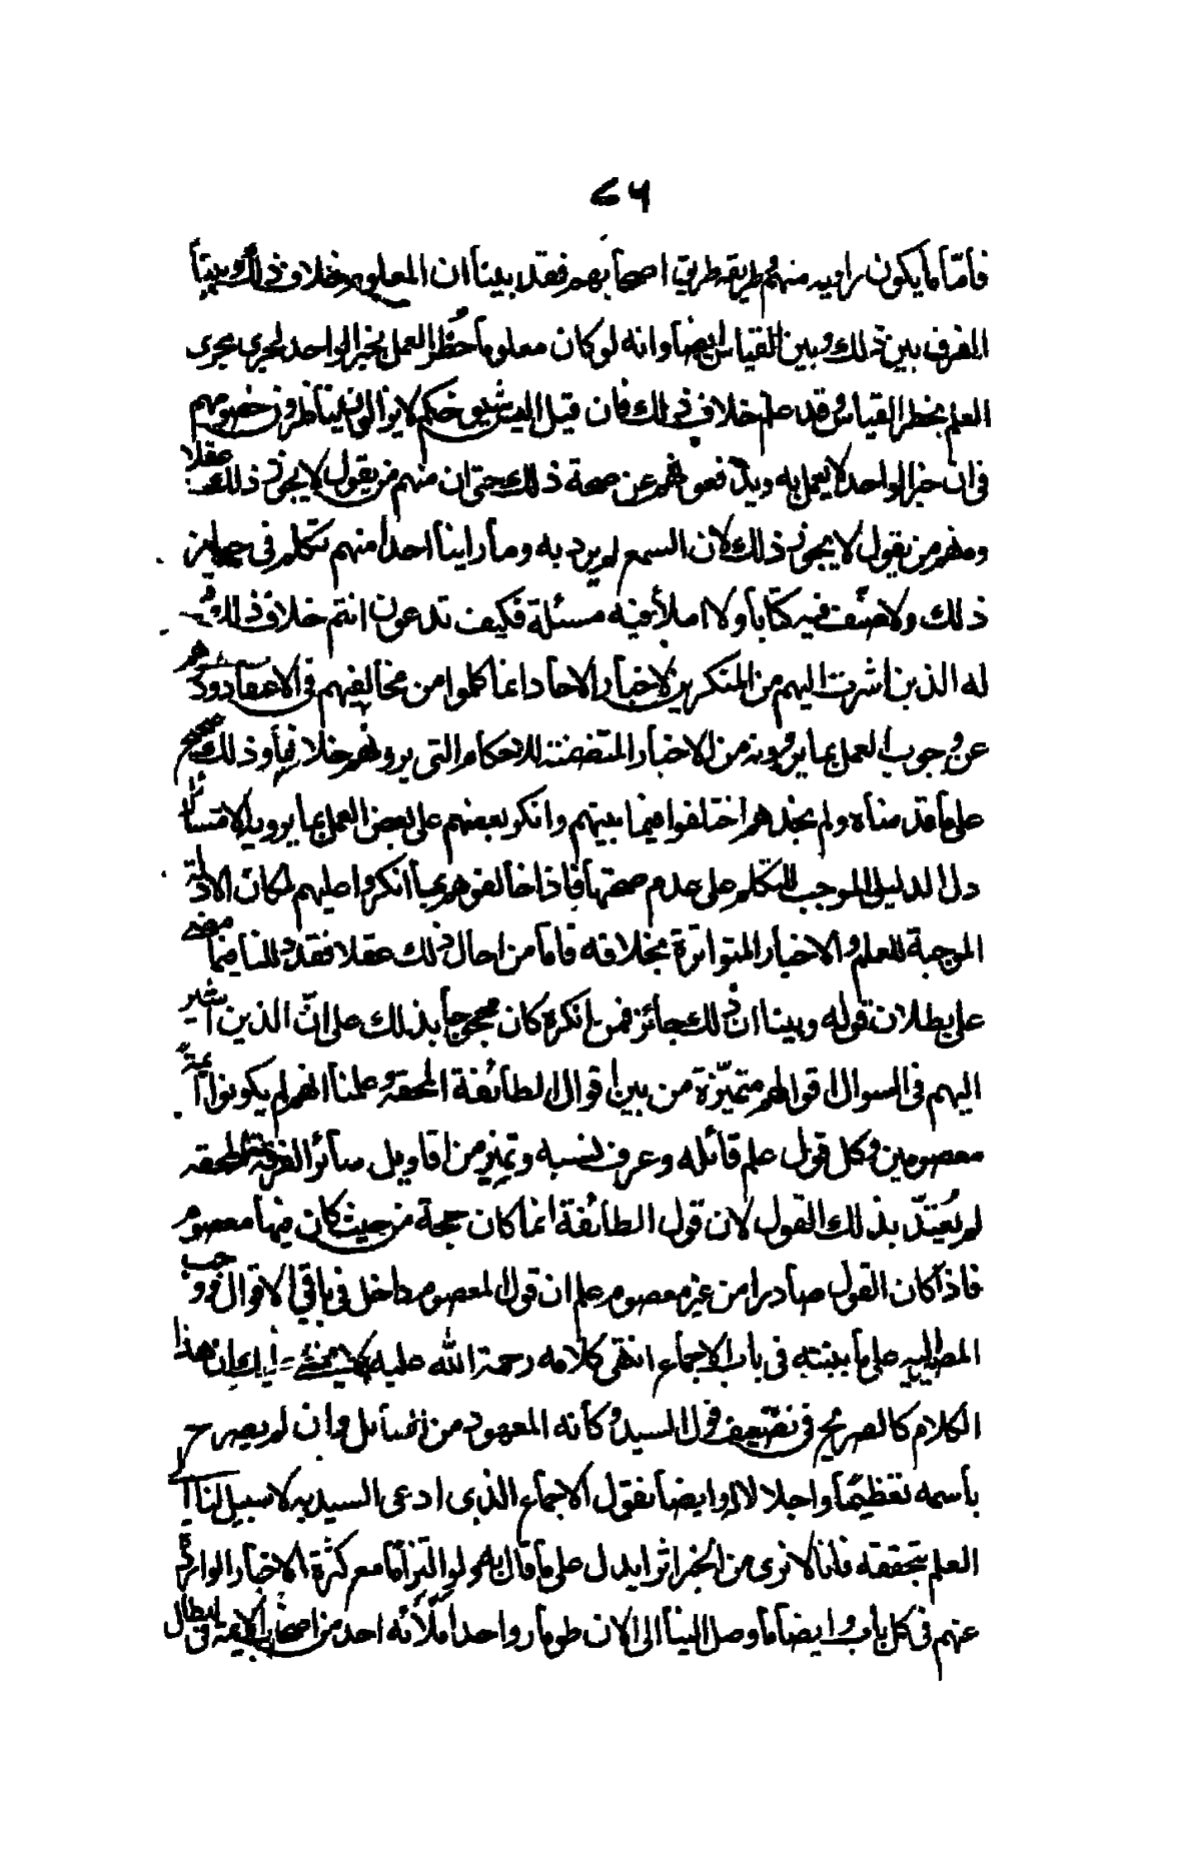 ٧٦
فأمّا ما يكون راويه منهم وطريقه طريق اصحابهم فقد بينا ان المعلوم خلاف ذلك وبينا
الفرق بين ذلك وبين القياس ايضا وانه لو كان معلوما حظر العمل بخبر الواحد لجرى مجرى
العلم بحظر القياس وقد علم خلاف ذلك فان قيل اليس شيوخكم لا يزالون يناظرون خصومهم
فى ان خبر الواحد لا يعمل به ويدفعونهم عن صحة ذلك حتى ان منهم من يقول لا يجوز ذلك عقلا
ومنهم من يقول لا يجوز ذلك لان السمع لم يرد به وما راينا احدا منهم تكلم فى جواز
ذلك ولا صنف فيه كتابا ولا املأ فيه مسئلة فكيف تدعون انتم خلاف ذلك
له الذين اشرت اليهم من المنكرين لاخبار الاحاد انما كلموا من مخالفيهم فى الاعتقاد ودفعوهم
عن وجوب العمل بما يروونه من الاخبار المتضمنة للاحكام التى يروونهم خلافها وذلك صحيح
على ما قدمناه ولم نجدهم اختلفوا فيما بينهم وانكر بعضهم على بعض العمل بما يروونه الا مسائل
دل الدليل الموجب للتكلم على عدم صحتها فاذا خالفوهم فيها انكروا عليهم لمكان الادلة
الموجبة للعلم والاخبار المتواترة بخلافه فاما من احال ذلك عقلا فقد دللنا فيما مضى
على بطلان قوله وبينا ان ذلك جائز فمن انكره كان محجوجا بذلك على انّ الذين اشير
اليهم فى السوال اقوالهم متميّزة من بين اقوال الطائفة المحقة وعلمنا انهم لم يكونوا ائمة
معصومين وكل قول علم قائله وعرف نسبه وتميز من اقاويل سائر الفرقة المحقه
لم يُعتدّ بذلك القول لان قول الطائفة انما كان حجة من حيث كان فيها معصوم
فاذا كان القول صادرا من غير معصوم علم ان قول المعصوم داخل فى باقى الاقوال ووجب
المصير اليه على ما بينته فى باب الاجماع انتهى كلامه رحمة الله عليه ولا يخفى عليك ان هذا
الكلام كالصريح فى تضعيف قول السيد وكأنه المعهود من القائل وان لم يصرح
بأسمه تعظيمًا واجلالا له وايضا نقول الاجماع الذى ادعى السيد به لا سبيل لنا الى
العلم بتحققه فانا لا نرى من الخبر اثرا يدل على ما قال به ولو التزاما مع كثرة الاخبار الواردة
عنهم فى كل باب وايضا ما وصل الينا الى الان طومار واحد املأنه احد من اصحاب الائمة فى ابطال